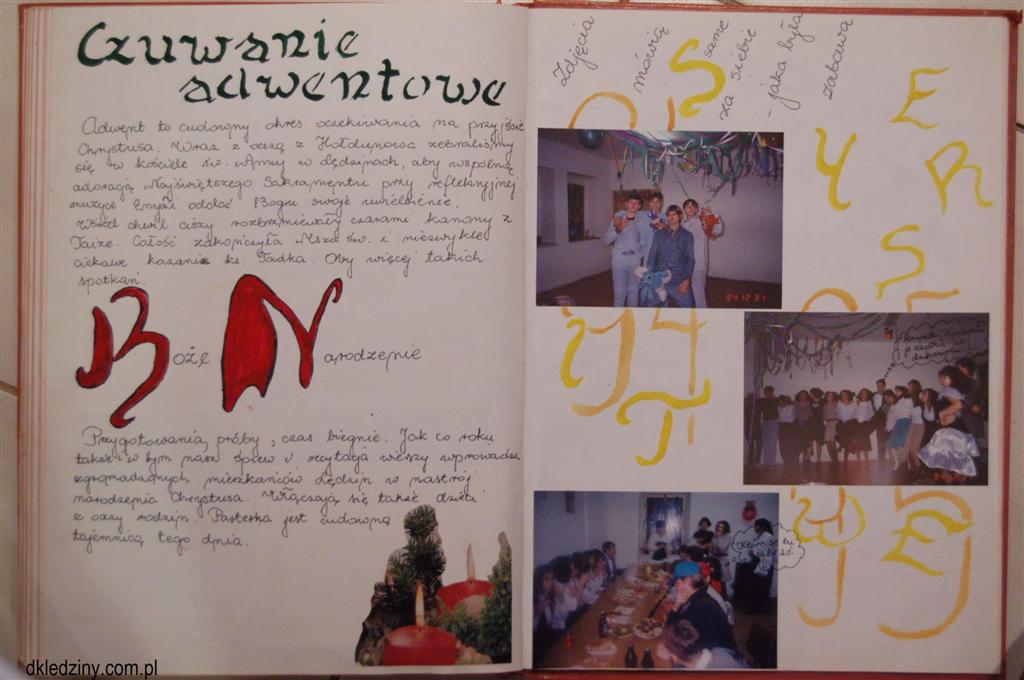 Czuwanie
adwentowe
Adwent to cudowny okres oczekiwania na przyjście
Chrystusa. Wraz z oazą z Hołdunowa zebraliśmy
się w kościele św. Anny w Lędzinach, aby wspólną
adoracją Najświętszego Sakramentu przy refleksyjnej
muzyce Enyi oddać Bogu swoje uwielbienie.
Wśród chwil ciszy rozbrzmiewały czarami kanony z
Taize. Całość zakończyła Msza św. i niezwykle
ciekawe kazanie ks. Tadka. Oby więcej takich
spotkań.
Boże Narodzenie
Przygotowania, próby, czas biegnie. Jak co roku
także w tym nasz śpiew i recytacja wierszy wprowadza
zgromadzonych mieszkańców Lędzin w nastrój
narodzenia Chrystusa. Włączają się także dzieci
z oazy rodzin. Pasterka jest cudowną
tajemnicą tego dnia.
dkledziny.com.pl
Zdjęcia mówią same za siebie - jaka była zabawa
SYLWESTER
94 12 31